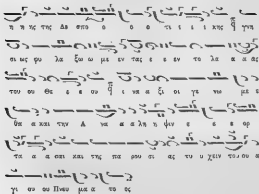 η η της της Δε σπο ο ο τι ε ι κης γνη
σι ως φυ λα ξω ω με εν τας ε ε εν το λα α ας
του ου Θε ε ο υ ι να α ξι οι γε νω με ε
θα α και την Α να α α λη η ψιν ε ε ορ
τα α α σαι και της πα ρου σι ας τυ υ χειν το ου α
γι ου ου Πνευ μα α το ος